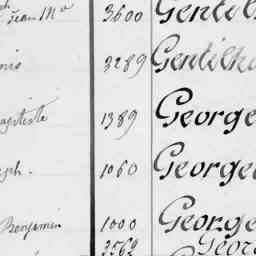 Jean Mᵃ 3600 Gentil
nis 3289 Gentilho
aptiste 1389 George
eph. 1060 George
Benjamin 1000 George
3562 Geor